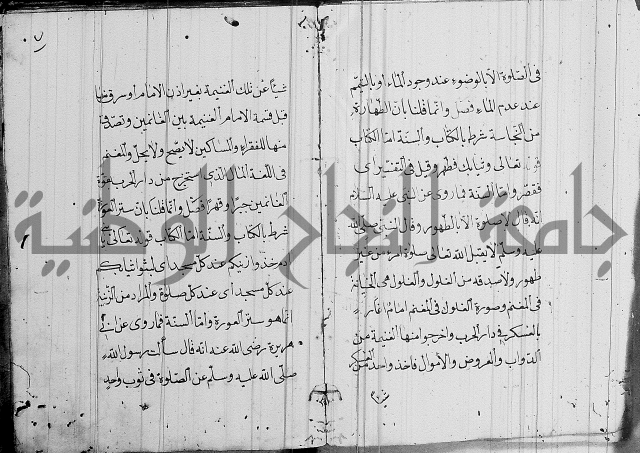 فى الصلوة الا بالوضوء عند وجود الماء او بالتيمم
عند عدم الماء فصل وانما قلنا بان الطهارة
من النجاسة شرط بالكتاب والسنة اما الكتاب
تعالى وثيابك فطهر وقيل فى التفسير اى
فقصر واما السنة فما روى عن النبى عليه السلام
انه قال لا صلوة الا بالطهور وقال النبى صلى الله
عليه وسلم لا يقبل الله تعالى صلوة امرء من غير
طهور ولا صدقة من الغلول والغلول هى الخيانة
فى المغنم وصورة الغلول فى المغنم امام اغار
بالعسكر فى دار الحرب واخرجوا منها الغنيمة من
الدواب والعروض والاموال فاخذ واحد
شيئا من تلك الغنيمة بغير اذن الامام او سرق منها
قبل قسمة الامام الغنيمة بين الغانمين وتصدق
منها للفقراء والمساكين لا يصح ولا يحل والمغنم
فى اللغة المال الذى استخرج من دار الحرب بقوة
الغانمين جبرا وقهرا فصل وانما قلنا بان ستر العورة
شرط بالكتاب والسنة اما الكتاب قوله تعالى يا بنى
ادم خذوا زينتكم عند كل مسجد اى البسوا ثيابكم
عند كل مسجد اى عند كل صلوة والمراد من الزينة
انما هو ستر العورة واما السنة فما روى عن ابى
هريرة رضى الله عنه انه قال سألت رسول الله
صلى الله عليه وسلم عن الصلوة فى ثوب واحد
جامعة النجاح الوطنية